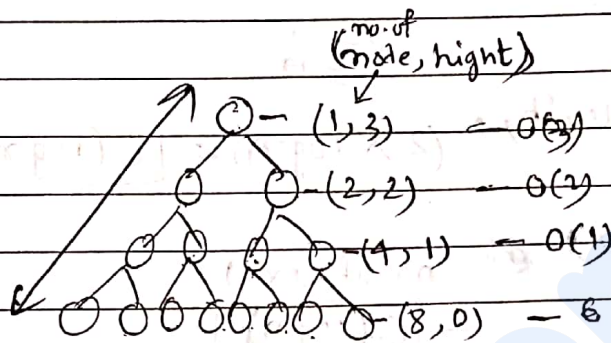 no. of
(node, hight)
(1,3) - O(3)
(2,2) - O(2)
(4,1) - O(1)
(8,0) -